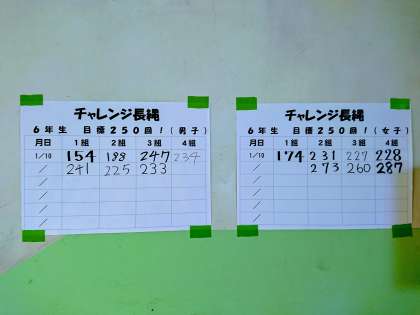 チャレンジ長縄
6年生 目標250回!(男子)
月日 1組 2組 3組 4組
1/10 154 188 247 234
/ 241 225 233
/
/
/
/
チャレンジ長縄
6年生 目標250回!(女子)
月日 1組 2組 3組 4組
1/10 174 231 227 228
/ 273 260 287
/
/
/
/